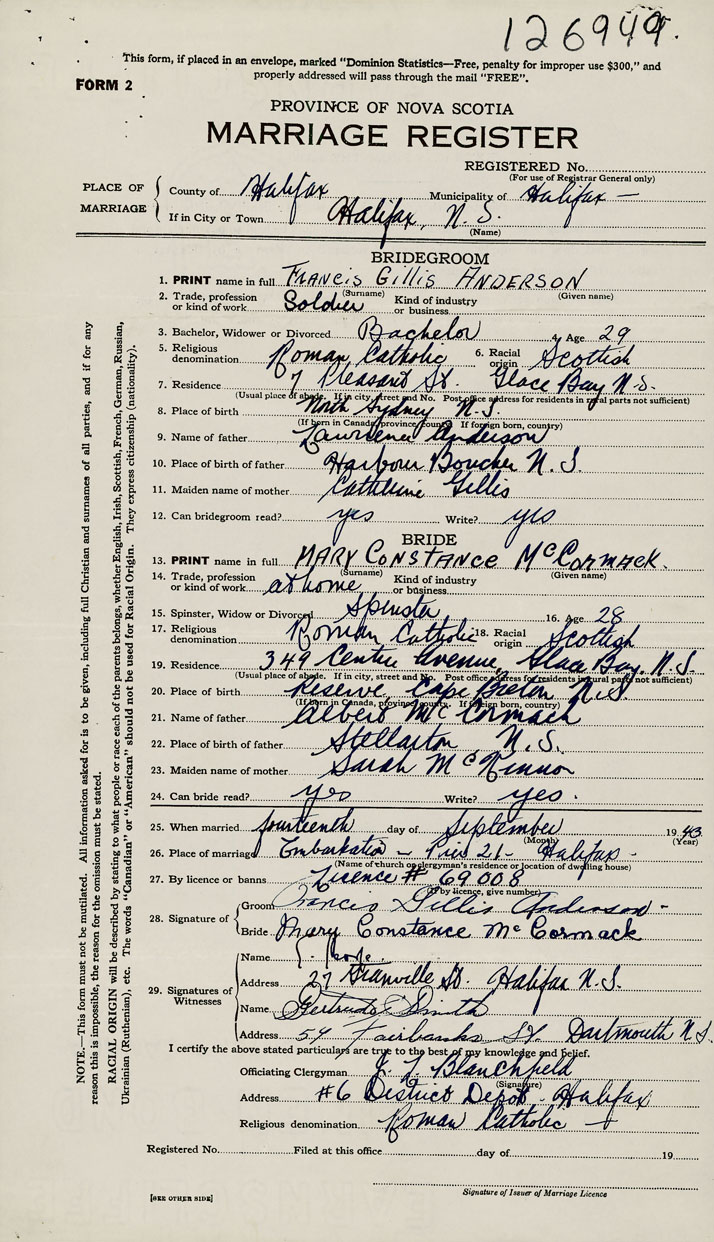 126949.
This form, if placed in an envelope, marked "Dominion Statistics—Free, penalty for improper use $300," and
properly addressed will pass through the mail "FREE".
FORM 2
PROVINCE OF NOVA SCOTIA
MARRIAGE REGISTER
REGISTERED No.
(For use of Registrar General only)
PLACE OF MARRIAGE
County of Halifax Municipality of Halifax —
If in City or Town Halifax, N. S.
(Name)
BRIDEGROOM
1. PRINT name in full FRANCIS GILLIS ANDERSON
(Surname) (Given name)
2. Trade, profession or kind of work Soldier Kind of industry or business
3. Bachelor, Widower or Divorced Bachelor 4. Age 29
5. Religious denomination Roman Catholic 6. Racial origin Scottish
7. Residence 7 Pleasant St. Glace Bay N.S.
(Usual place of abode. If in city, street and No. Post office address for residents in rural parts not sufficient)
8. Place of birth North Sydney N.S.
(If born in Canada, province, county. If foreign born, country)
9. Name of father Lawrence Anderson
10. Place of birth of father Harbour Boucher N.S.
11. Maiden name of mother Catherine Gillis
12. Can bridegroom read? yes Write? yes
BRIDE
13. PRINT name in full MARY CONSTANCE McCORMACK.
(Surname) (Given name)
14. Trade, profession or kind of work at home Kind of industry or business
15. Spinster, Widow or Divorced Spinster 16. Age 28
17. Religious denomination Roman Catholic 18. Racial origin Scottish
19. Residence 349 Centre Avenue, Glace Bay, N.S.
(Usual place of abode. If in city, street and No. Post office address for residents in rural parts not sufficient)
20. Place of birth Reserve, Cape Breton N.S
(If born in Canada, province, county. If foreign born, country)
21. Name of father Albert McCormack
22. Place of birth of father Stellarton N.S.
23. Maiden name of mother Sarah McKinnon
24. Can bride read? yes Write? yes.
25. When married fourteenth day of September 1943
(Month) (Year)
26. Place of marriage Embarkation – Pier 21 – Halifax –
(Name of church or clergyman's residence or location of dwelling house)
27. By licence or banns Licence # 69008
(If by licence, give number)
28. Signature of
Groom Francis Gillis Anderson –
Bride Mary Constance McCormack
29. Signatures of Witnesses
Name
Address 27 Granville St. Halifax N.S.
Name Gertrude Smith
Address 54 Fairbanks St. Dartmouth N.S
I certify the above stated particulars are true to the best of my knowledge and belief.
Officiating Clergyman Blanchfield
(Signature)
Address #6 District Depot – Halifax
Religious denomination Roman Catholic
Registered No. Filed at this office day of 19
Signature of Issuer of Marriage Licence
[SEE OTHER SIDE]
NOTE.—This form must not be mutilated. All information asked for is to be given, including full Christian and surnames of all parties, and if for any
reason this is impossible, the reason for the omission must be stated.
RACIAL ORIGIN will be described by stating to what people or race each of the parents belongs, whether English, Irish, Scottish, French, German, Russian,
Ukrainian (Ruthenian), etc. The words "Canadian" or "American" should not be used for Racial Origin. They express citizenship (nationality).